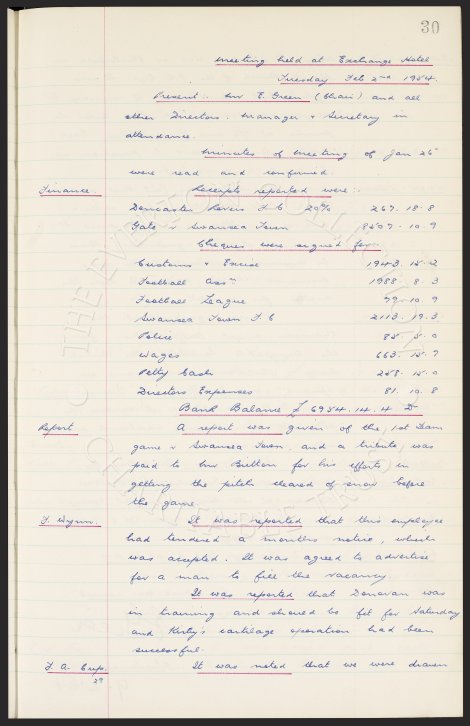 30
Meeting held at Exchange Hotel
Tuesday Feb 2nd 1954.
Present:- Mr E. Green (Chair) and all
other Directors. Manager & Secretary in
attendance.
Minutes of Meeting of Jan 26
were read and confirmed.
Finance. Receipts reported were:-
Doncaster Rovers F C 20% 267. 18. 8
Gate v Swansea Town 8507. 10. 9
Cheques were signed for:-
Customs & Excise 1943. 15. 2
Football Assn 1988. 8. 3
Football League 79. 10. 9
Swansea Town F C 2113. 19. 3
Police 85. 5. 0
Wages 663. 15. 7
Petty Cash 258. 15. 0
Directors Expenses 81. 10. 8
Bank Balance £ 6954. 14. 4 Dr
Report A report was given of the 1st Team
game v Swansea Town, and a tribute was
paid to Mr Button for his efforts in
getting the pitch cleared of snow before
the game.
F. Wynn. It was reported that this employee
had tendered a months notice, which
was accepted. It was agreed to advertise
for a man to fill the vacancy
It was reported that Donovan was
in training and should be fit for Saturday
and Kirby's cartilage operation had been
successful.
F. A. Cup. It was noted that we were drawn
29